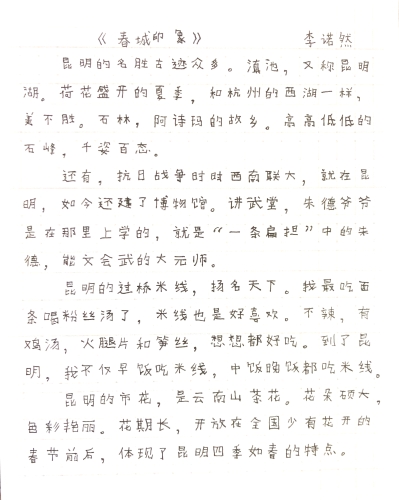 《春城印象》 李诺然
昆明的名胜古迹众多。滇池，又称昆明
湖。荷花盛开的夏季，和杭州的西湖一样，
美不胜。石林，阿诗玛的故乡。高高低低的
石峰，千姿百态。
还有，抗日战争时时西南联大，就在昆
明，如今还建了博物馆。讲武堂，朱德爷爷
是在那里上学的，就是“一条扁担”中的朱
德，能文会武的大元师。
昆明的过桥米线，扬名天下。我最吃西
条唱粉丝汤了，米线也是好喜欢。不辣，有
鸡汤，火腿片和笋丝，想想都好吃。到了昆
明，我不仅早饭吃米线，中饭晚饭都吃米线。
昆明的市花，是云南山茶花。花朵硕大，
色彩艳丽。花期长，开放在全国少有花开的
春节前后，体现了昆明四季如春的特点。